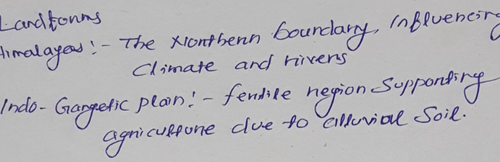 Landforms
Himalayas:- The Northern boundary, Influencing
Climate and rivers
Indo-Gangetic plain:- fertile region supporting
agriculture due to alluvial soil.